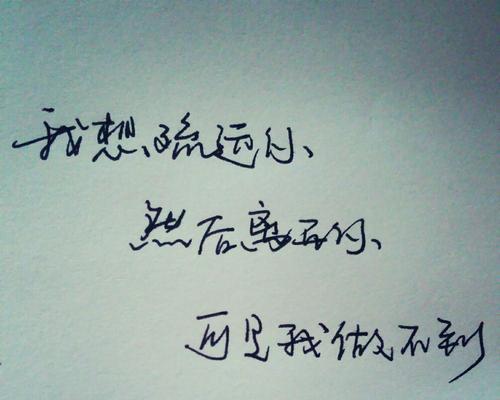 我想疏远你
然后离开你
可是我做不到